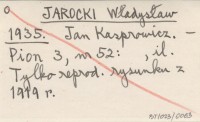 o
JAROCKI Władysław
1935. Jan Kasprowicz. –
Pion 3, nr 52: , il.
Tylko reprod. rysunku z
1919 r.